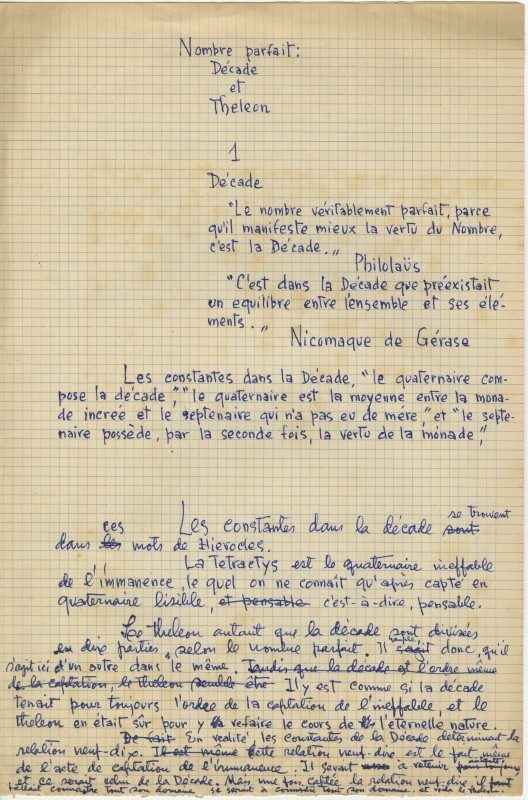 Nombre parfait:
Décade
et
Theleon
1
Décade
"Le nombre véritablement parfait, parce
qu'il manifeste mieux la vertu du Nombre,
c'est la Décade."
Philolaüs
"C'est dans la Décade que préexistait
un equilibre entre l'ensemble et ses élé-
ments."
Nicomaque de Gérase
Les constantes dans la Décade, "le quaternaire com-
pose la décade", "le quaternaire est la moyenne entre la mona-
de increé et le septenaire qui n'a pas eu de mére," et "le septe-
naire possède, par la seconde fois, la vertu de la monade",
ces Les constantes dans la décade sont se trouvent
dans les mots de Hierocles.
La Tetractys est le quaternaire ineffable
de l'immanence, le quel on ne connait qu'après capté en
quaternaire lisible, et pensable c'est-à-dire, pensable.
Le theleon autant que la décade sont divisées
en dix parties, selon le nombre parfait. Il s'agit donc, qu'il
s'agit ici d'un autre dans le même. Tandis que la décade est l'ordre même
de la captation, le theleon semble être Il y est comme si la décade
tenait pour toujours l'ordre de la captation de l'ineffable, et le
theleon en était sûr pour y refaire le cours de l'éternelle nature.
De fait En realité, les constantes de la Décade determinent la
relation neuf-dix. Il est même Cette relation neuf-dix est le fait même
de l'acte de captation de l'immanence. Il serait à retenir
et ce serait celui de la Décade. Mais une fois captée la relation neuf-dix, il faut
connaître tout son domaine